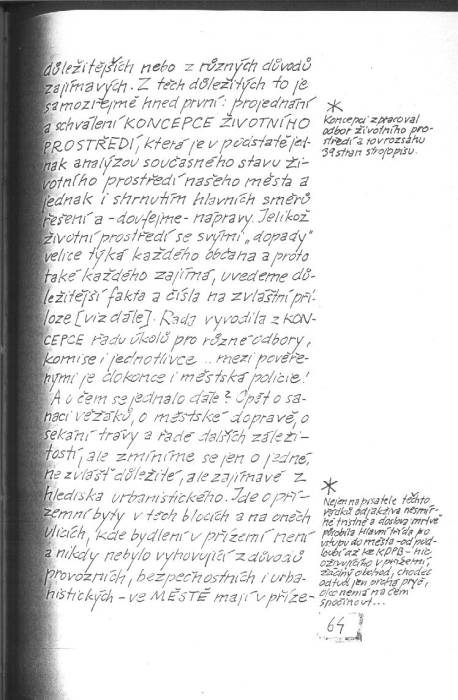 důležitějších nebo z různých důvodů
zajímavých. Z těch důležitých to je
samozřejmě hned první: projednání
a schválení KONCEPCE ŽIVOTNÍHO
PROSTŘEDÍ, která je v podstatě jed-
nak analýzou současného stavu ži-
votního prostředí našeho města a
jednak i shrnutím hlavních směrů
řešení a - doufejme - nápravy. Jelikož
životní prostředí se svými „dopady"
velice týká každého občana a proto
také každého zajímá, uvedeme dů-
ležitější fakta a čísla na zvláštní pří-
loze [viz dále]. Rada vyvodila z KON-
CEPCE řadu úkolů pro různé odbory,
komise i jednotlivce .. mezi pověře-
nými je dokonce i městská policie!
A o čem se jednalo dále? Opět o sa-
naci věžáků, o městské dopravě, o
sekání trávy a řadě dalších záleži-
tostí, ale zmíníme se jen o jedné,
ne zvlášť důležité, ale zajímavé z
hlediska urbanistického. Jde o pří-
zemní byty v těch blocích a na oněch
ulicích, kde bydlení v přízemí není
a nikdy nebylo vyhovující z důvodů
provozních, bezpečnostních i urba-
nistických - ve MĚSTĚ mají v příze-
*
Koncepci zpracoval
odbor životního pro-
středí a to v rozsahu
39 stran strojopisu.
*
Nejen na pisatele těchto
řádků odjakživa nesmír-
ně tristně a doslova "mrtvě"
působila Hlavní třída po
vstupu do města - od pod-
loubí až ke KDPB - nic
oživujícího v přízemí,
žádný obchod, chodec
odtud jen prchá pryč,
oko nemá na čem
spočinout...
64